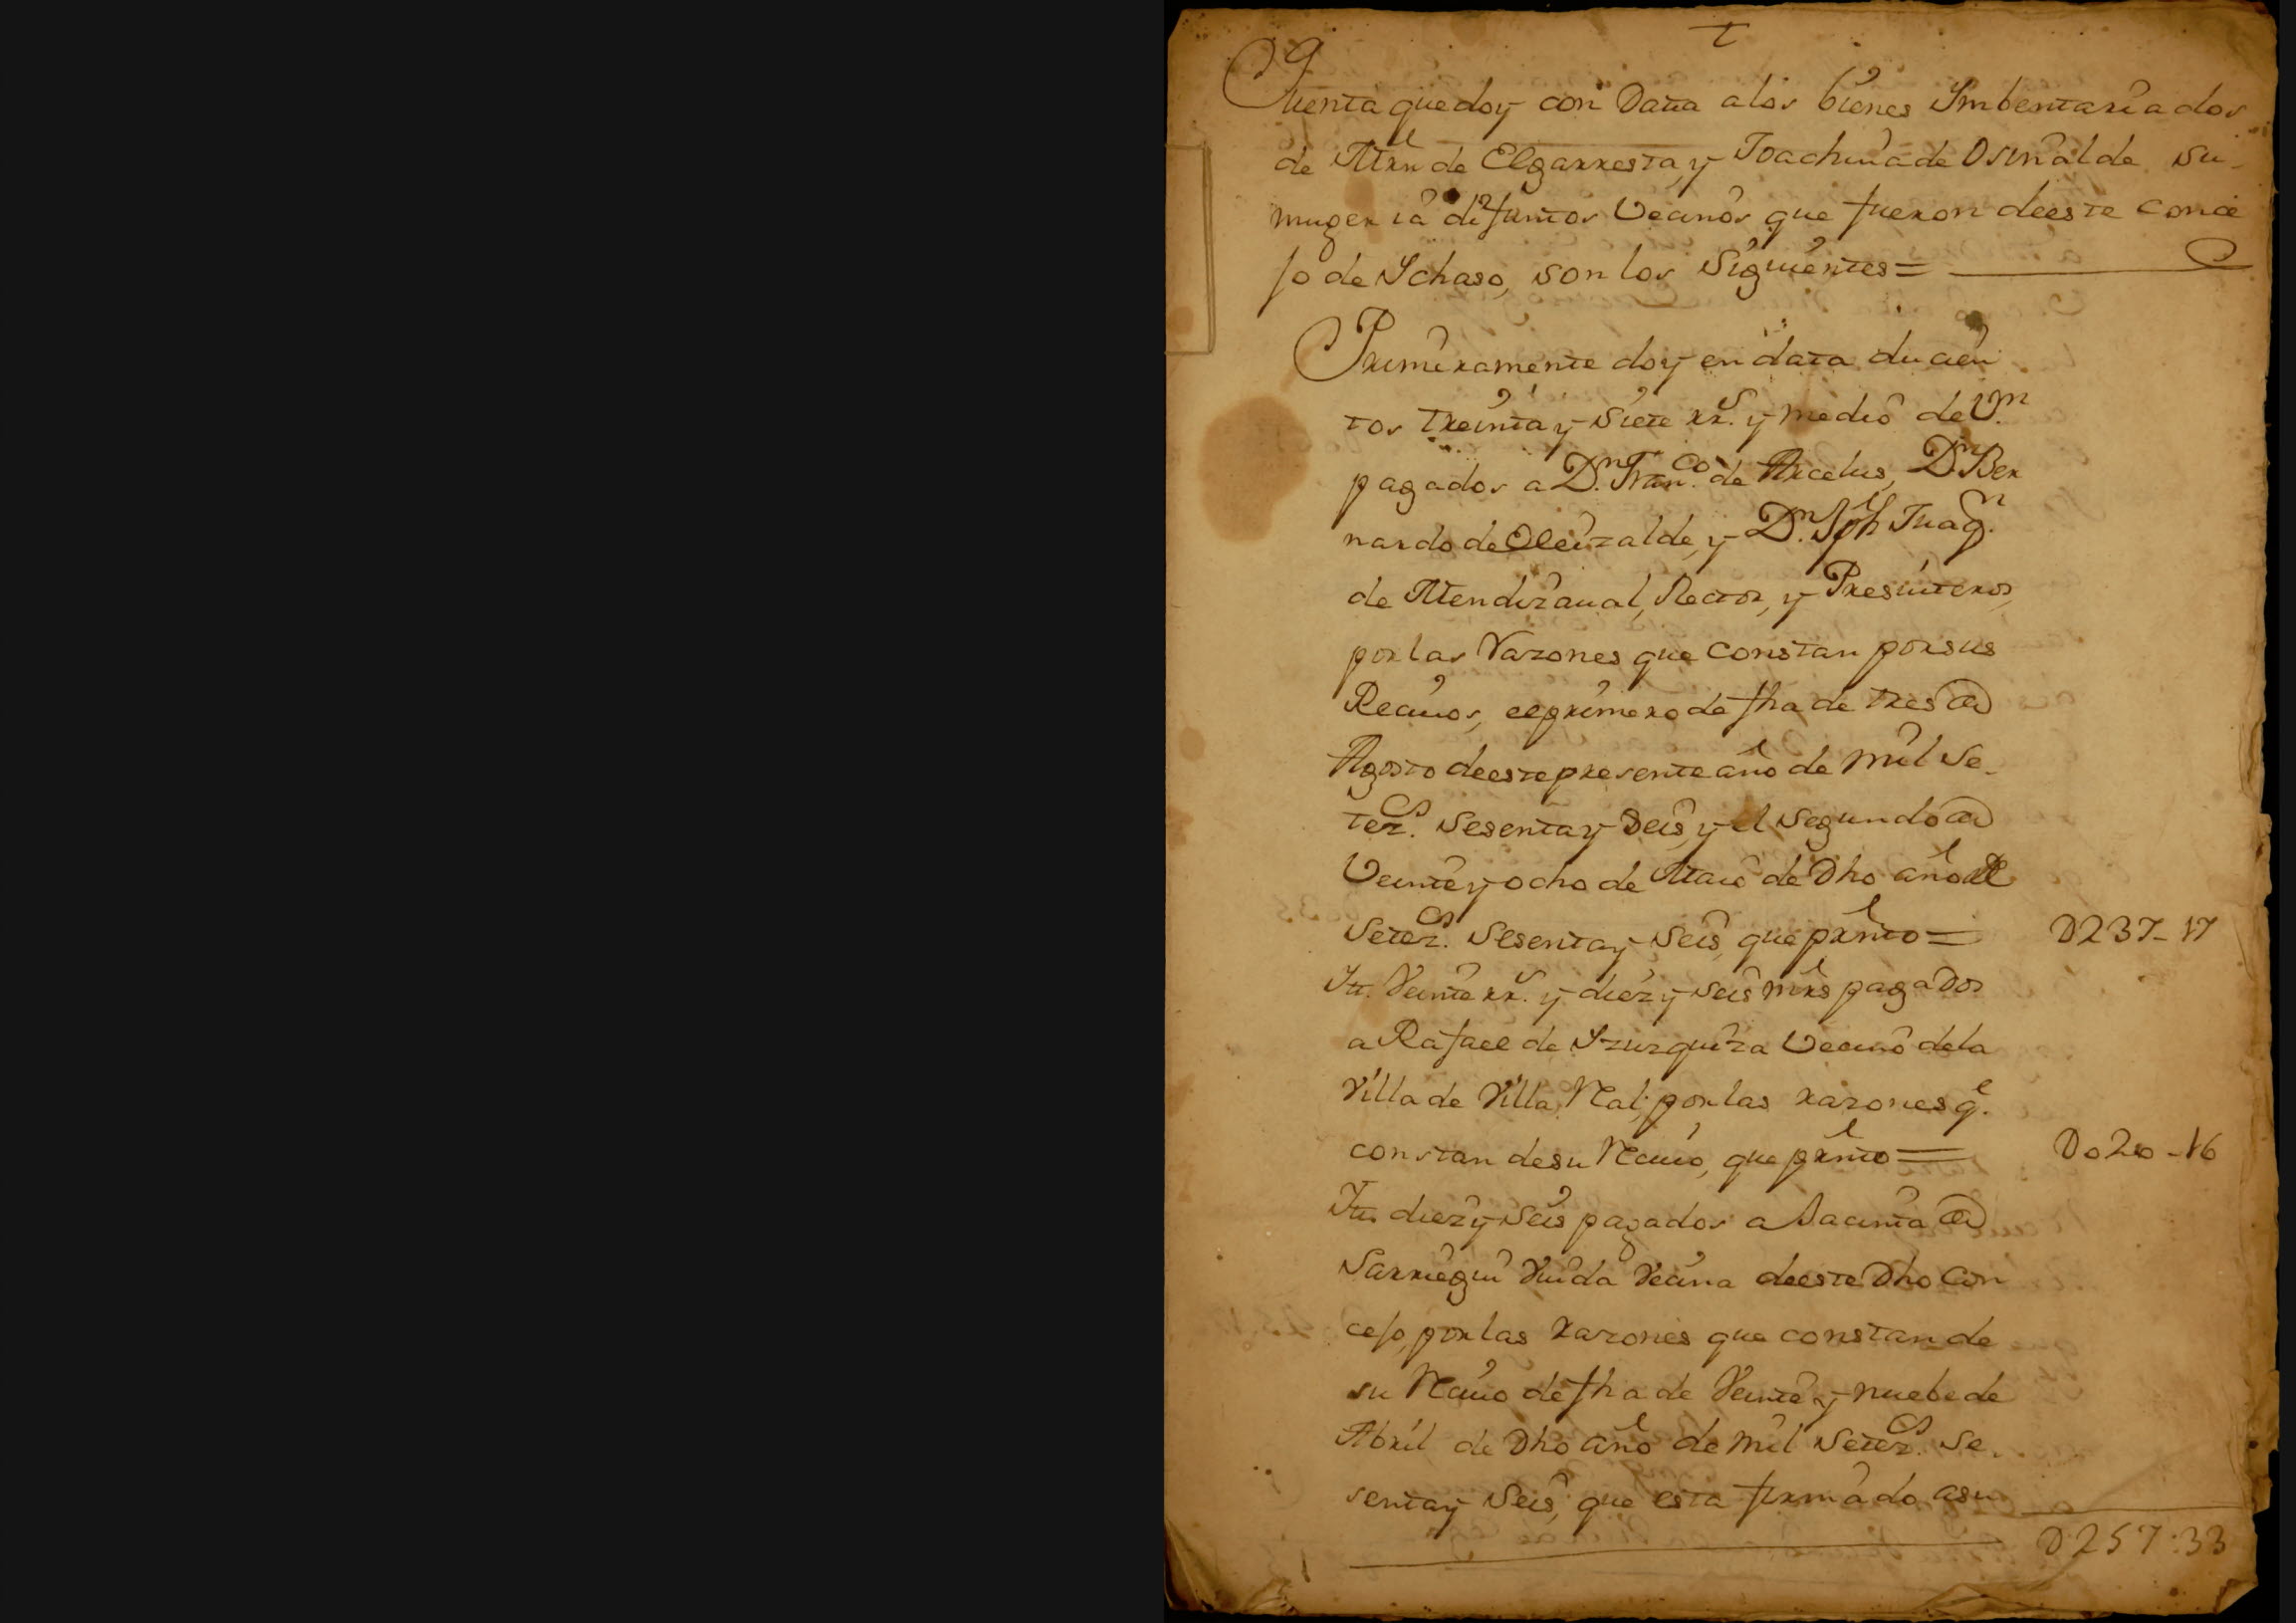 Cuenta que doy con Data a los bienes Imbentariados
de Mrn de Elgarresta, y Joachina de Osinalde su
muger ia difuntos Vecinos que fueron de este conce
jo de Ichaso, son los Siguientes =
Primeramente doy en data ducien
tos treinta y Siete rrs. y medio de Vn
pagados a Dn. Franco. de Arcelus, Dn. Ber
nardo de Oleizalde, y Dn. Jph Juaqn.
de Mendizaual, Rector, y Presuiteros,
por las Razones que constan por sus
Recivos, el primero de fha de tres de
Agosto de este presente año de mil Se-
tezs. Sesenta y Seis, y el segundo de
Veinte y ocho de Maio de Dho año de
Setezs. Sesenta y Seis, que prnto = D237-17
Itt. Veinte rrs. y diez y seis mrs pagados
a Rafael de Izuzquiza Vecino de la
Villa de Villa Real, por las razones qe.
constan de su Recivo, que prnto = D020-16
Itt. diez y Seis pagados a Jacinta de
Sarriegui Viuda Vecina de este Dho Con
cejo, por las razones que constan de
su Recivo de fha de Veinte y nuebe de
Abril de Dho año de mil Setezs. Se-
senta y Seis, que esta firmado a su
D257:33